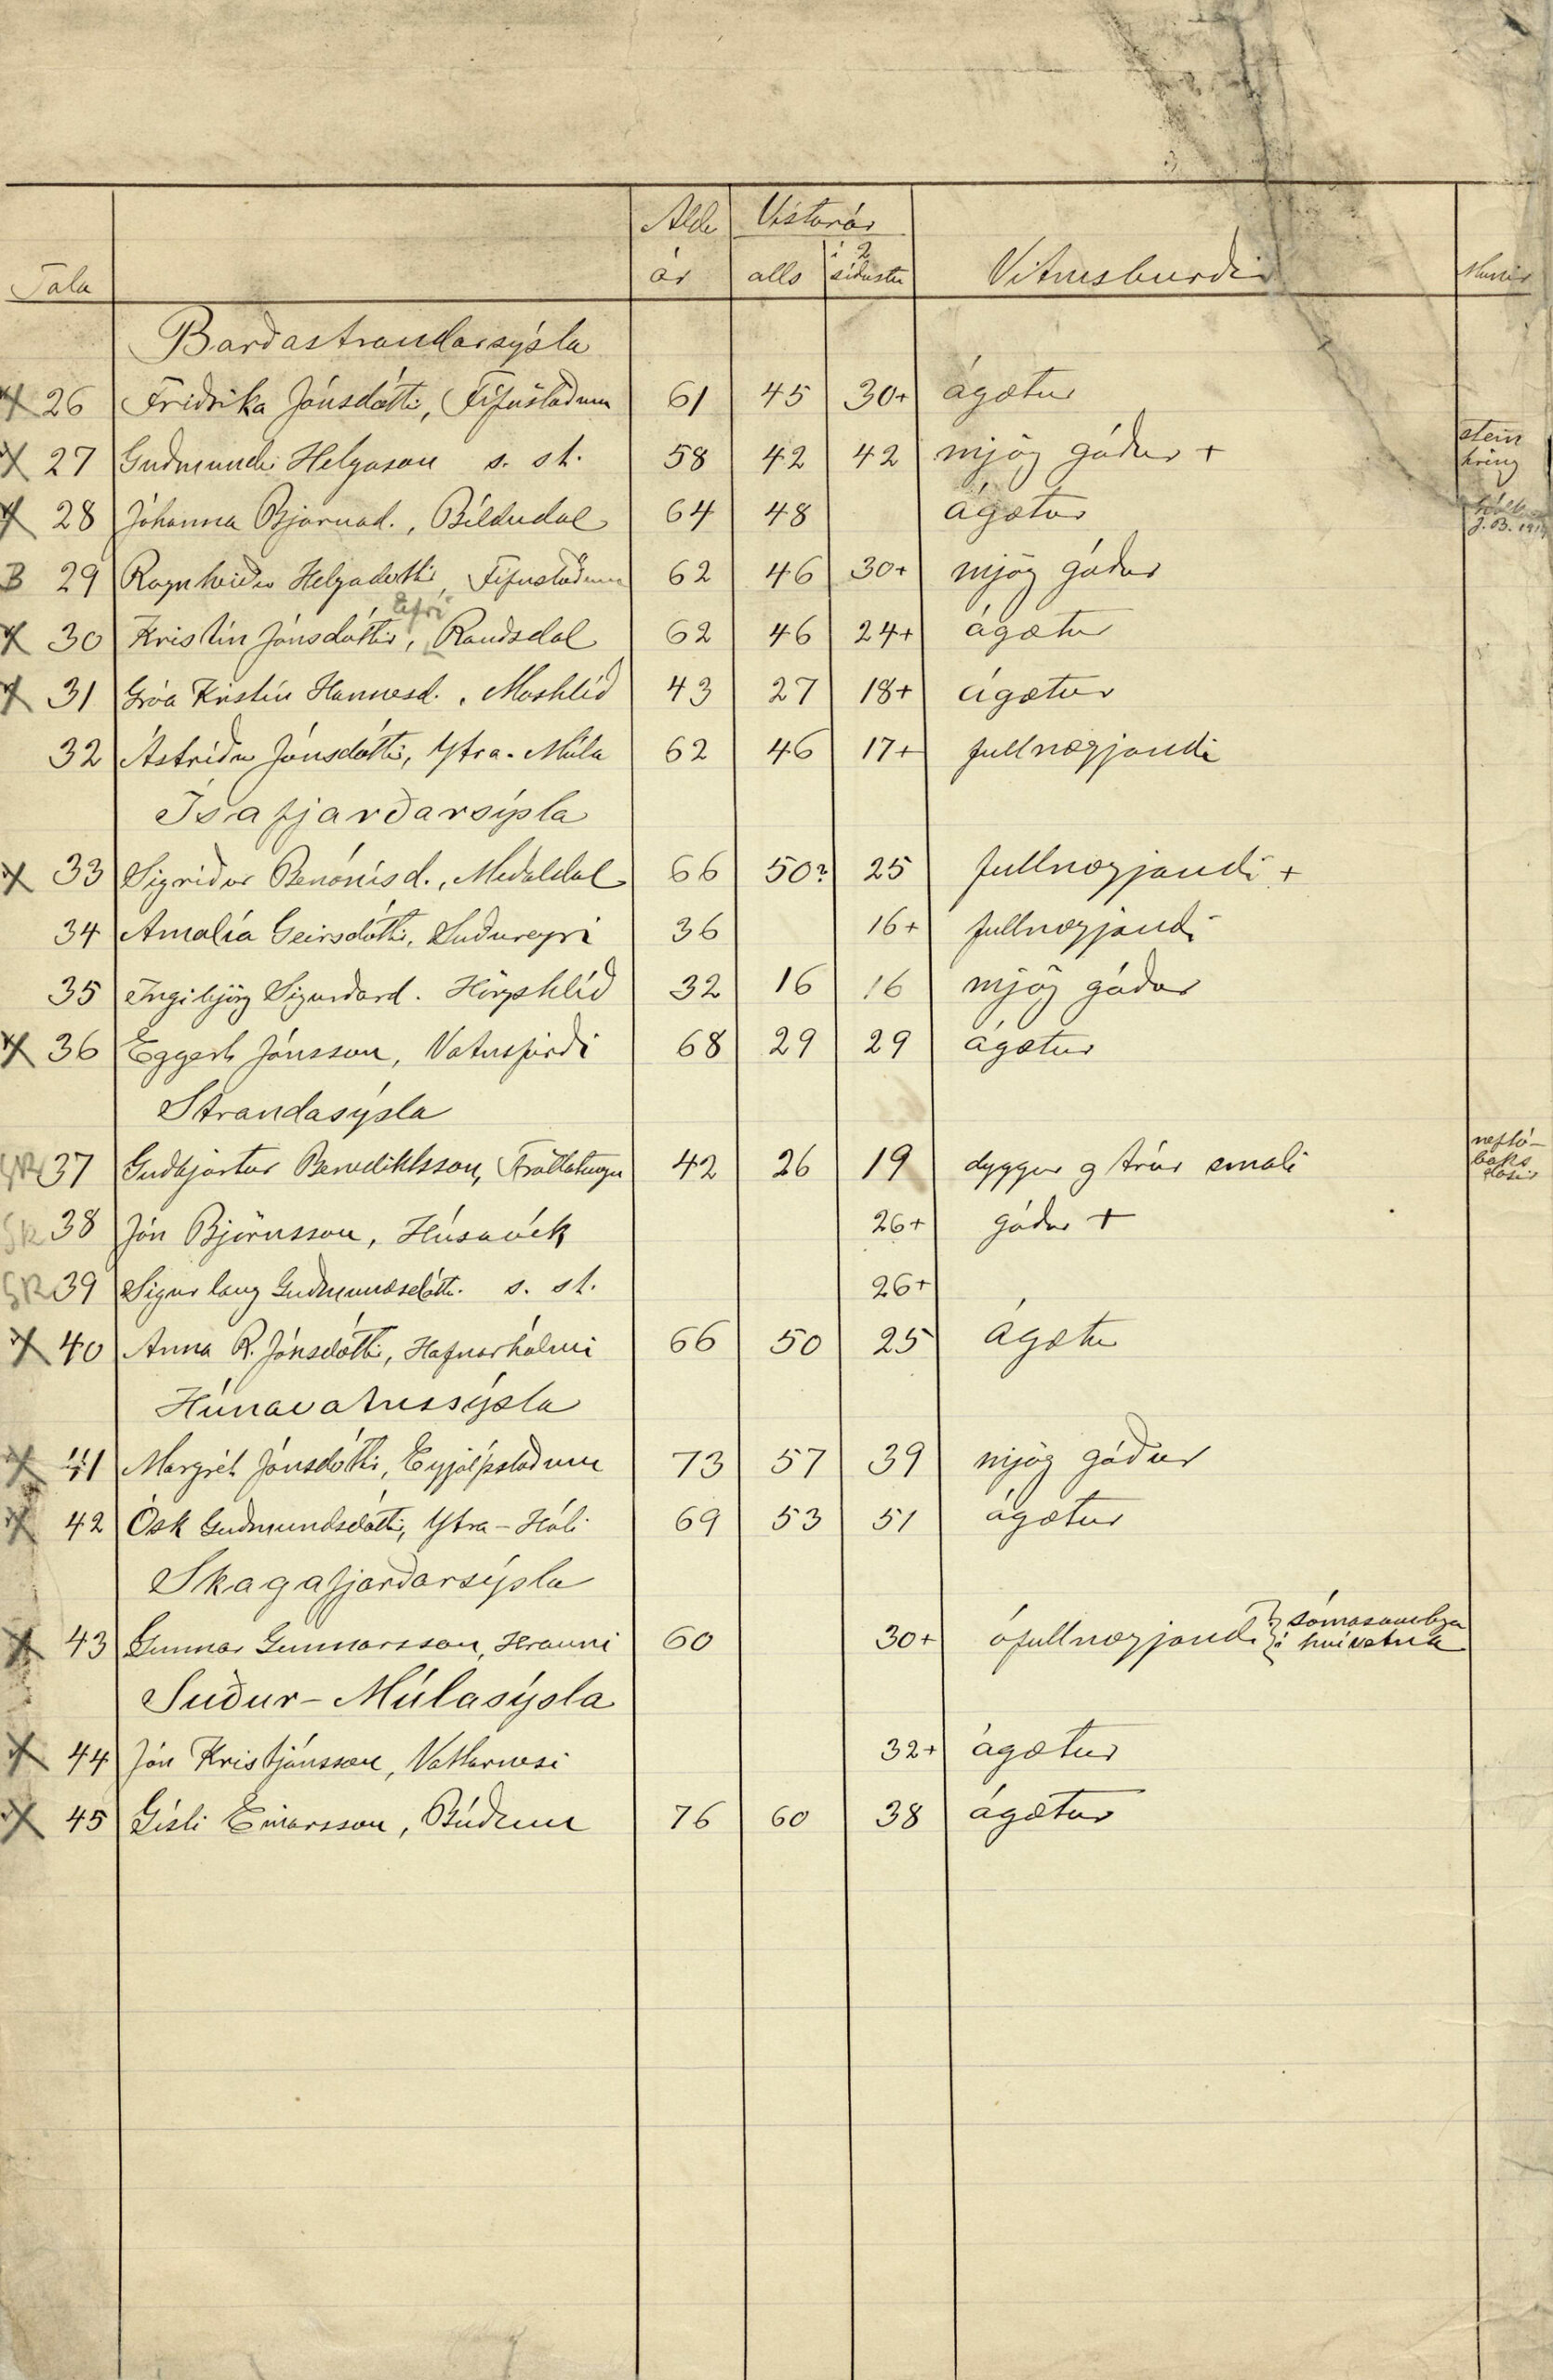 Aldr Vistarár
Tala ár alls í 2 síðustu Vitnisburðir Munir
Barðastrandarsýsla
X 26 Friðrika Jónsdóttir, Fífustöðum 61 45 30+ ágætur
X 27 Guðmundr Helgason s. st. 58 42 42 mjög góður + stein hring
X 28 Jóhanna Bjarnad., Bíldudal 64 48 ágætur J.B. 1914
B 29 Ragnheiðr Helgadóttir, Fífustöðum 62 46 30+ mjög góður
Efri
X 30 Kristín Jónsdóttir, Rauðsdal 62 46 24+ ágætur
X 31 Gróa Kristín Hannesd., Moshlíð 43 27 18+ ágætur
32 Ástríður Jónsdóttir, Ytra-Múla 62 46 17+ fullnægjandi
Ísafjarðarsýsla
X 33 Sigríður Benónísd., Meðaldal 66 50? 25 fullnægjandi +
34 Amalía Geirsdóttir, Suðureyri 36 16+ fullnægjandi
35 Ingibjörg Sigurðard. Hörgshlíð 32 16 16 mjög góður
X 36 Eggert Jónsson, Vatnsfirði 68 29 29 ágætur
Strandasýsla
SR 37 Guðbjartur Benediktsson, Tröllatungu 42 26 19 dyggur og trúr smali neftó-
baks
dósir
SR 38 Jón Björnsson, Húsavík 26+ góður +
SR 39 Sigurlaug Guðmundsdóttir s. st. 26+
X 40 Anna R. Jónsdóttir, Hafnarhólmi 66 50 25 Ágætur
Húnavatnssýsla
X 41 Margrét Jónsdóttir, Eyjólfsstöðum 73 57 39 mjög góður
X 42 Ósk Guðmundsdóttir, Ytra-Hóli 69 53 51 ágætur
Skagafjarðarsýsla
X 43 Gunnar Gunnarsson, Hrauni 60 30+ ófullnægjandi { sómasamlega
í hvívetna
Suður-Múlasýsla
X 44 Jón Kristjánsson, Vattarnesi 32+ ágætur
X 45 Gísli Einarsson, Búðum 76 60 38 ágætur